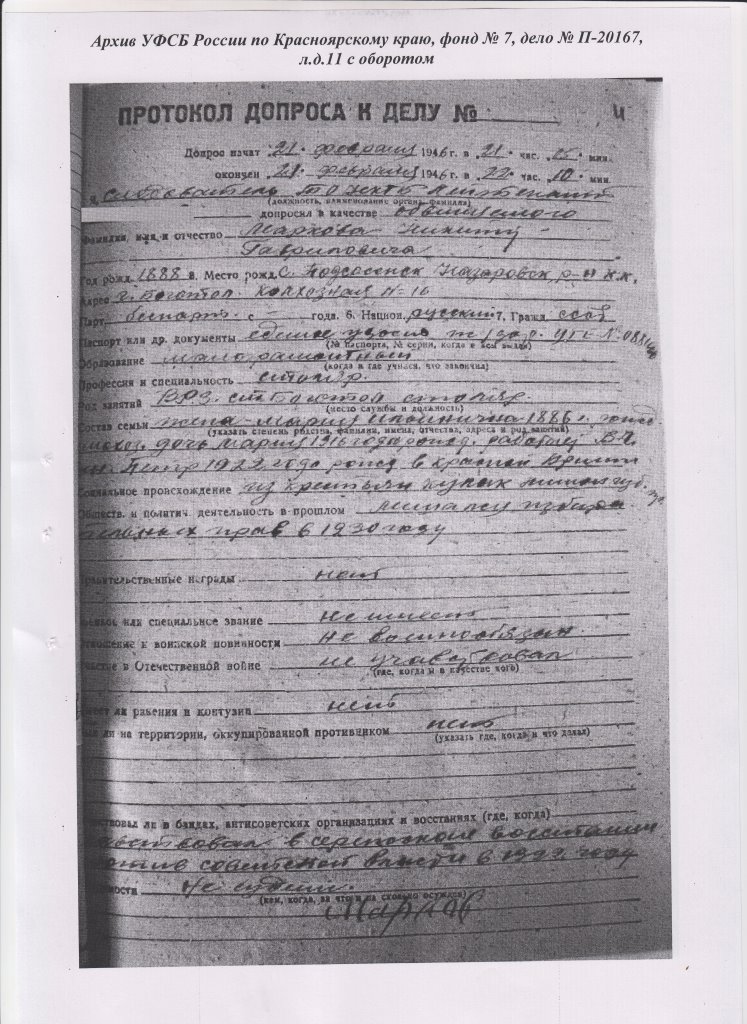 Архив УФСБ России по Красноярскому краю, фонд № 7, дело № П-20167,
л.д.11 с оборотом
ПРОТОКОЛ ДОПРОСА К ДЕЛУ №
Допрос начат 21 февраля 1946 г. в 21 час. 15 мин.
окончен 21 февраля 1946 г. в 22 час. 10 мин.
следователь
(должность, наименование органа, фамилия)
допросил в качестве обвиняемого
Фамилия, имя и отчество Маркова Никиту
Гавриловича
Год рожд. 1888 Место рожд. с. Подсосенск Назаровск. р-н К.К.
Адрес г. Боготол Колхозная №16
Парт. беспарт. с — года. 6. Национ. русский 7. Гражд. СССР
Паспорт или др. документы
(№ паспорта, № серии, когда и кем выдан)
Образование малограмотный
(когда и где учился, что закончил)
Профессия и специальность столяр.
Род занятий ВРЗ. ст. Боготол столяр.
(место службы и должность)
Состав семьи жена Мария 1886 г.
(указать степень родства, фамилии, имена, отчества, адреса и род занятий)
дочь Мария 1916 года рожд. работает
Петр 1922 года рожд в красной Армии
Социальное происхождение из крестьян кулак лишен
Обществ. и политич. деятельность в прошлом лишался избира
тельных прав в 1930 году
Правительственные награды нет
или специальное звание не имеет
Отношение к воинской повинности не военнообязан
Участие в Отечественной войне не участвовал
(где, когда и в качестве кого)
ли ранения и контузии нет
ли на территории, оккупированной противником нет
(указать где, когда и что делал)
ли в бандах, антисоветских организациях и восстаниях (где, когда)
в восстании
против советской власти в 1922 году
не судим.
(кем, когда, за что и на сколько осужден)
Марков